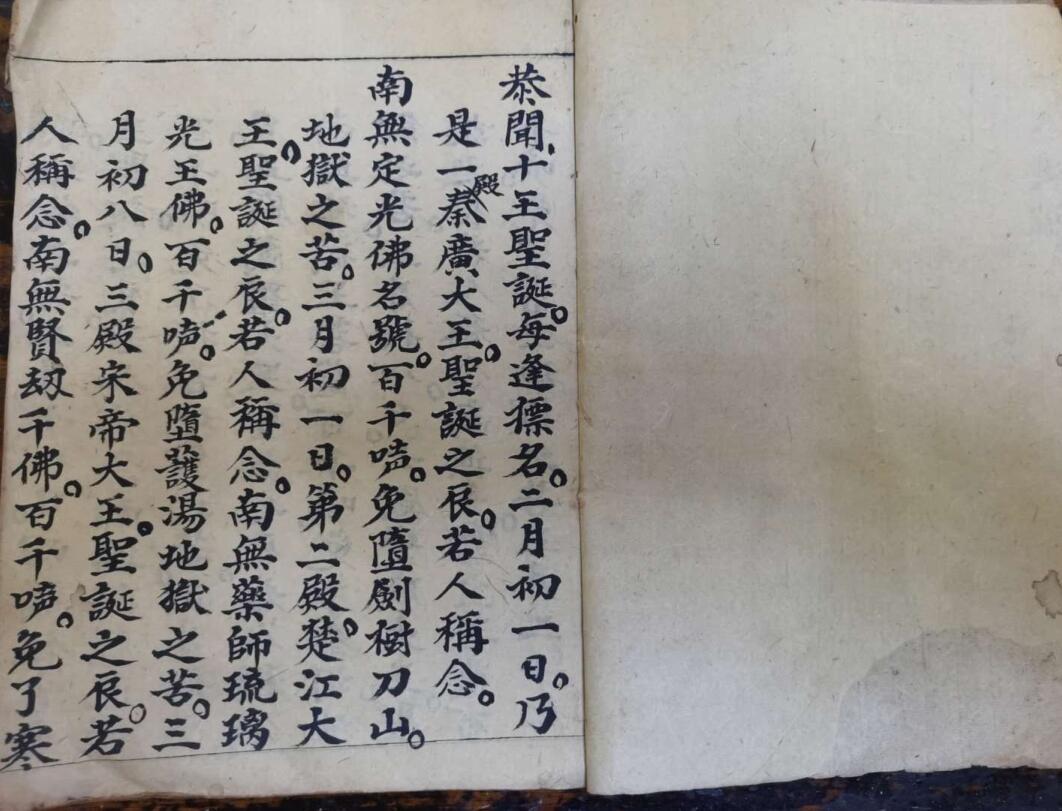 恭聞十王聖誕。每逢標名。二月初一日。乃
是一殿秦廣大王。聖誕之辰。若人稱念。
南無定光佛名號。百千唝。免墮劍樹刀山。
地獄之苦。三月初一日。第二殿。楚江大
王。聖誕之辰。若人稱念。南無藥師琉璃
光王佛。百千唝。免墮護湯地獄之苦。三
月初八日。三殿宋帝大王。聖誕之辰。若
人稱念。南無賢劫千佛。百千唝。免了寒